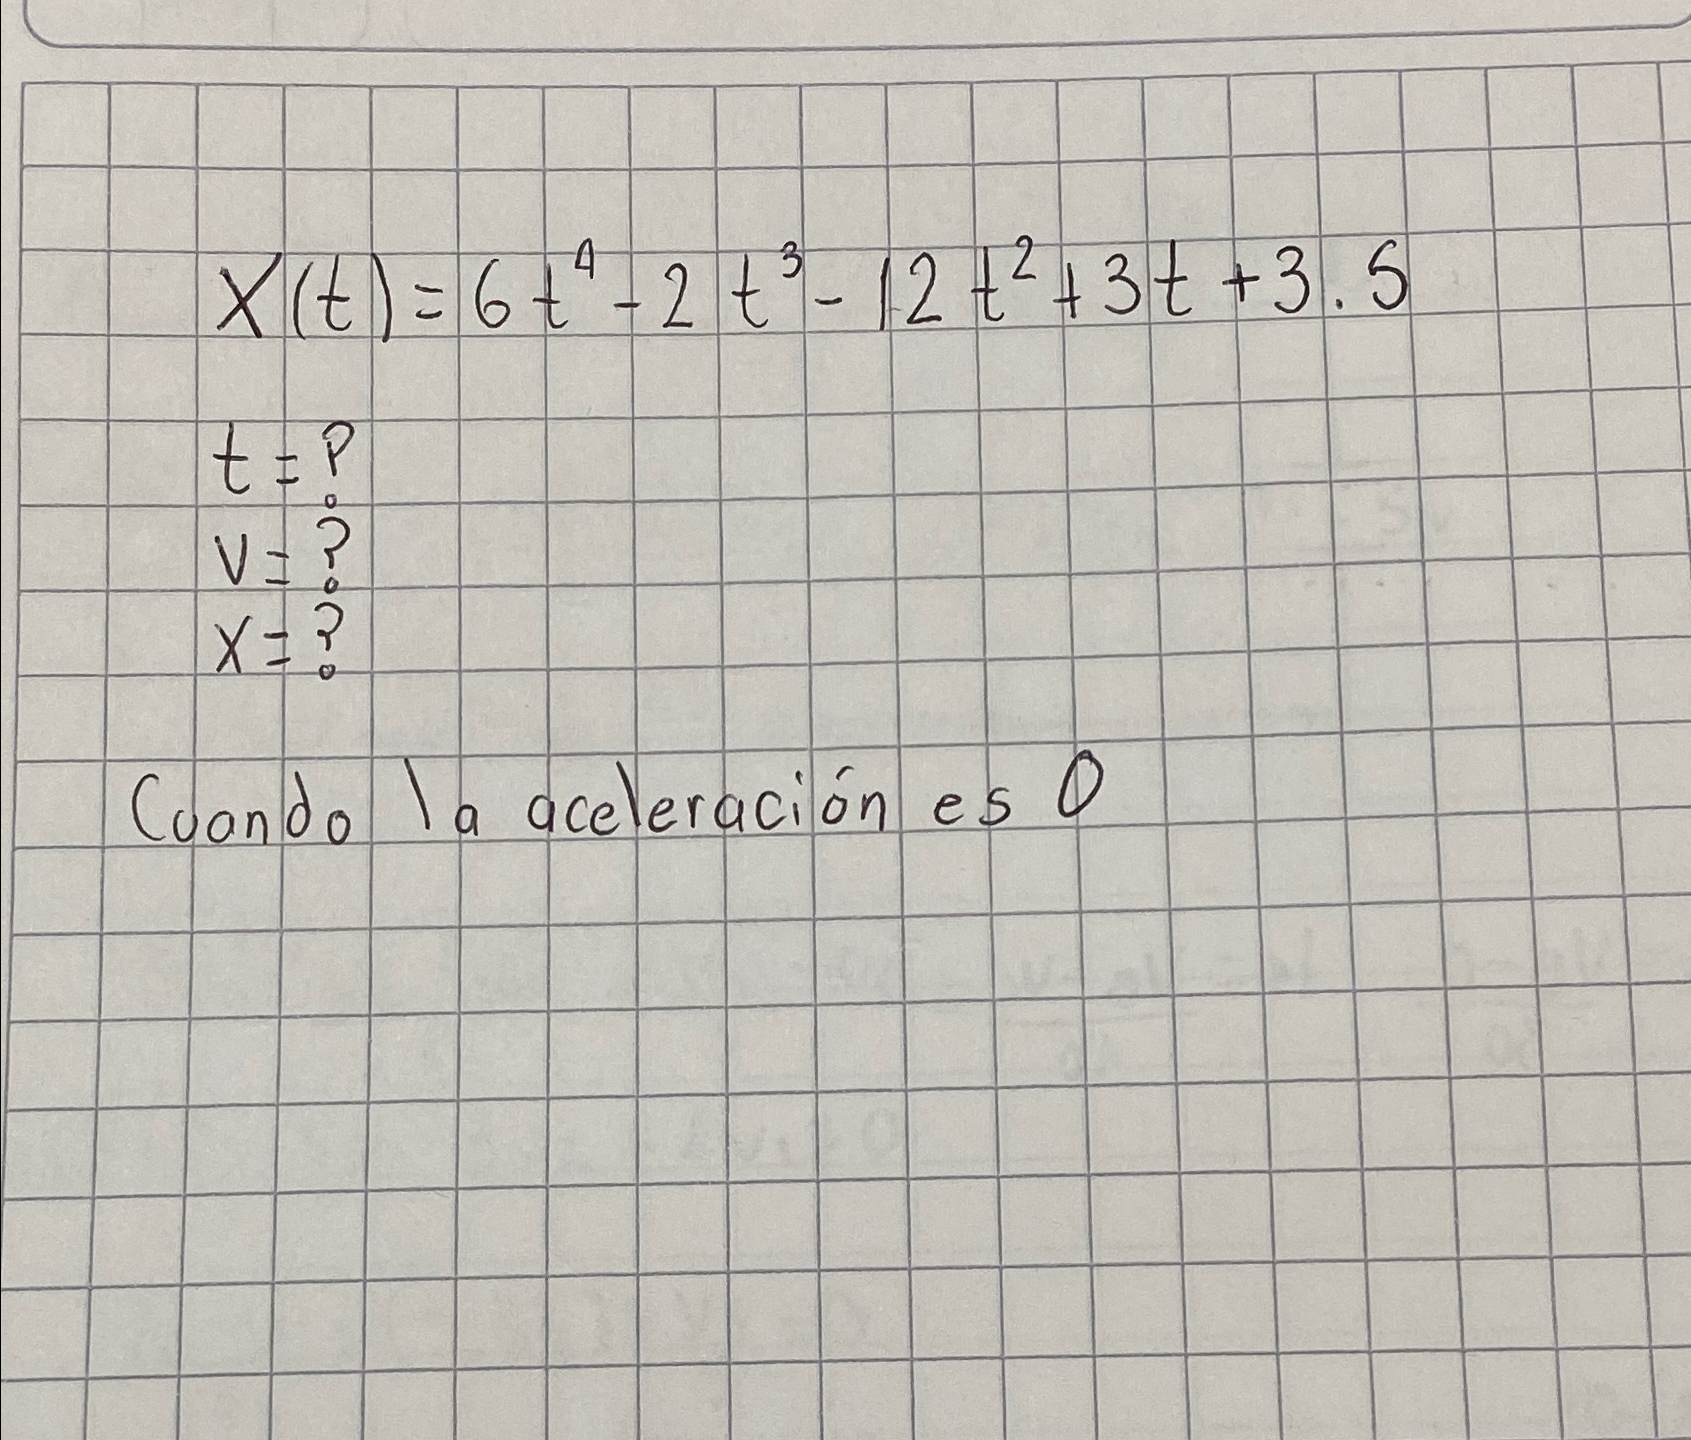 X(t) = 6t⁴ - 2t³ - 12t² + 3t + 3.5
t = ?
v = ?
x = ?
Cuando la aceleración es 0